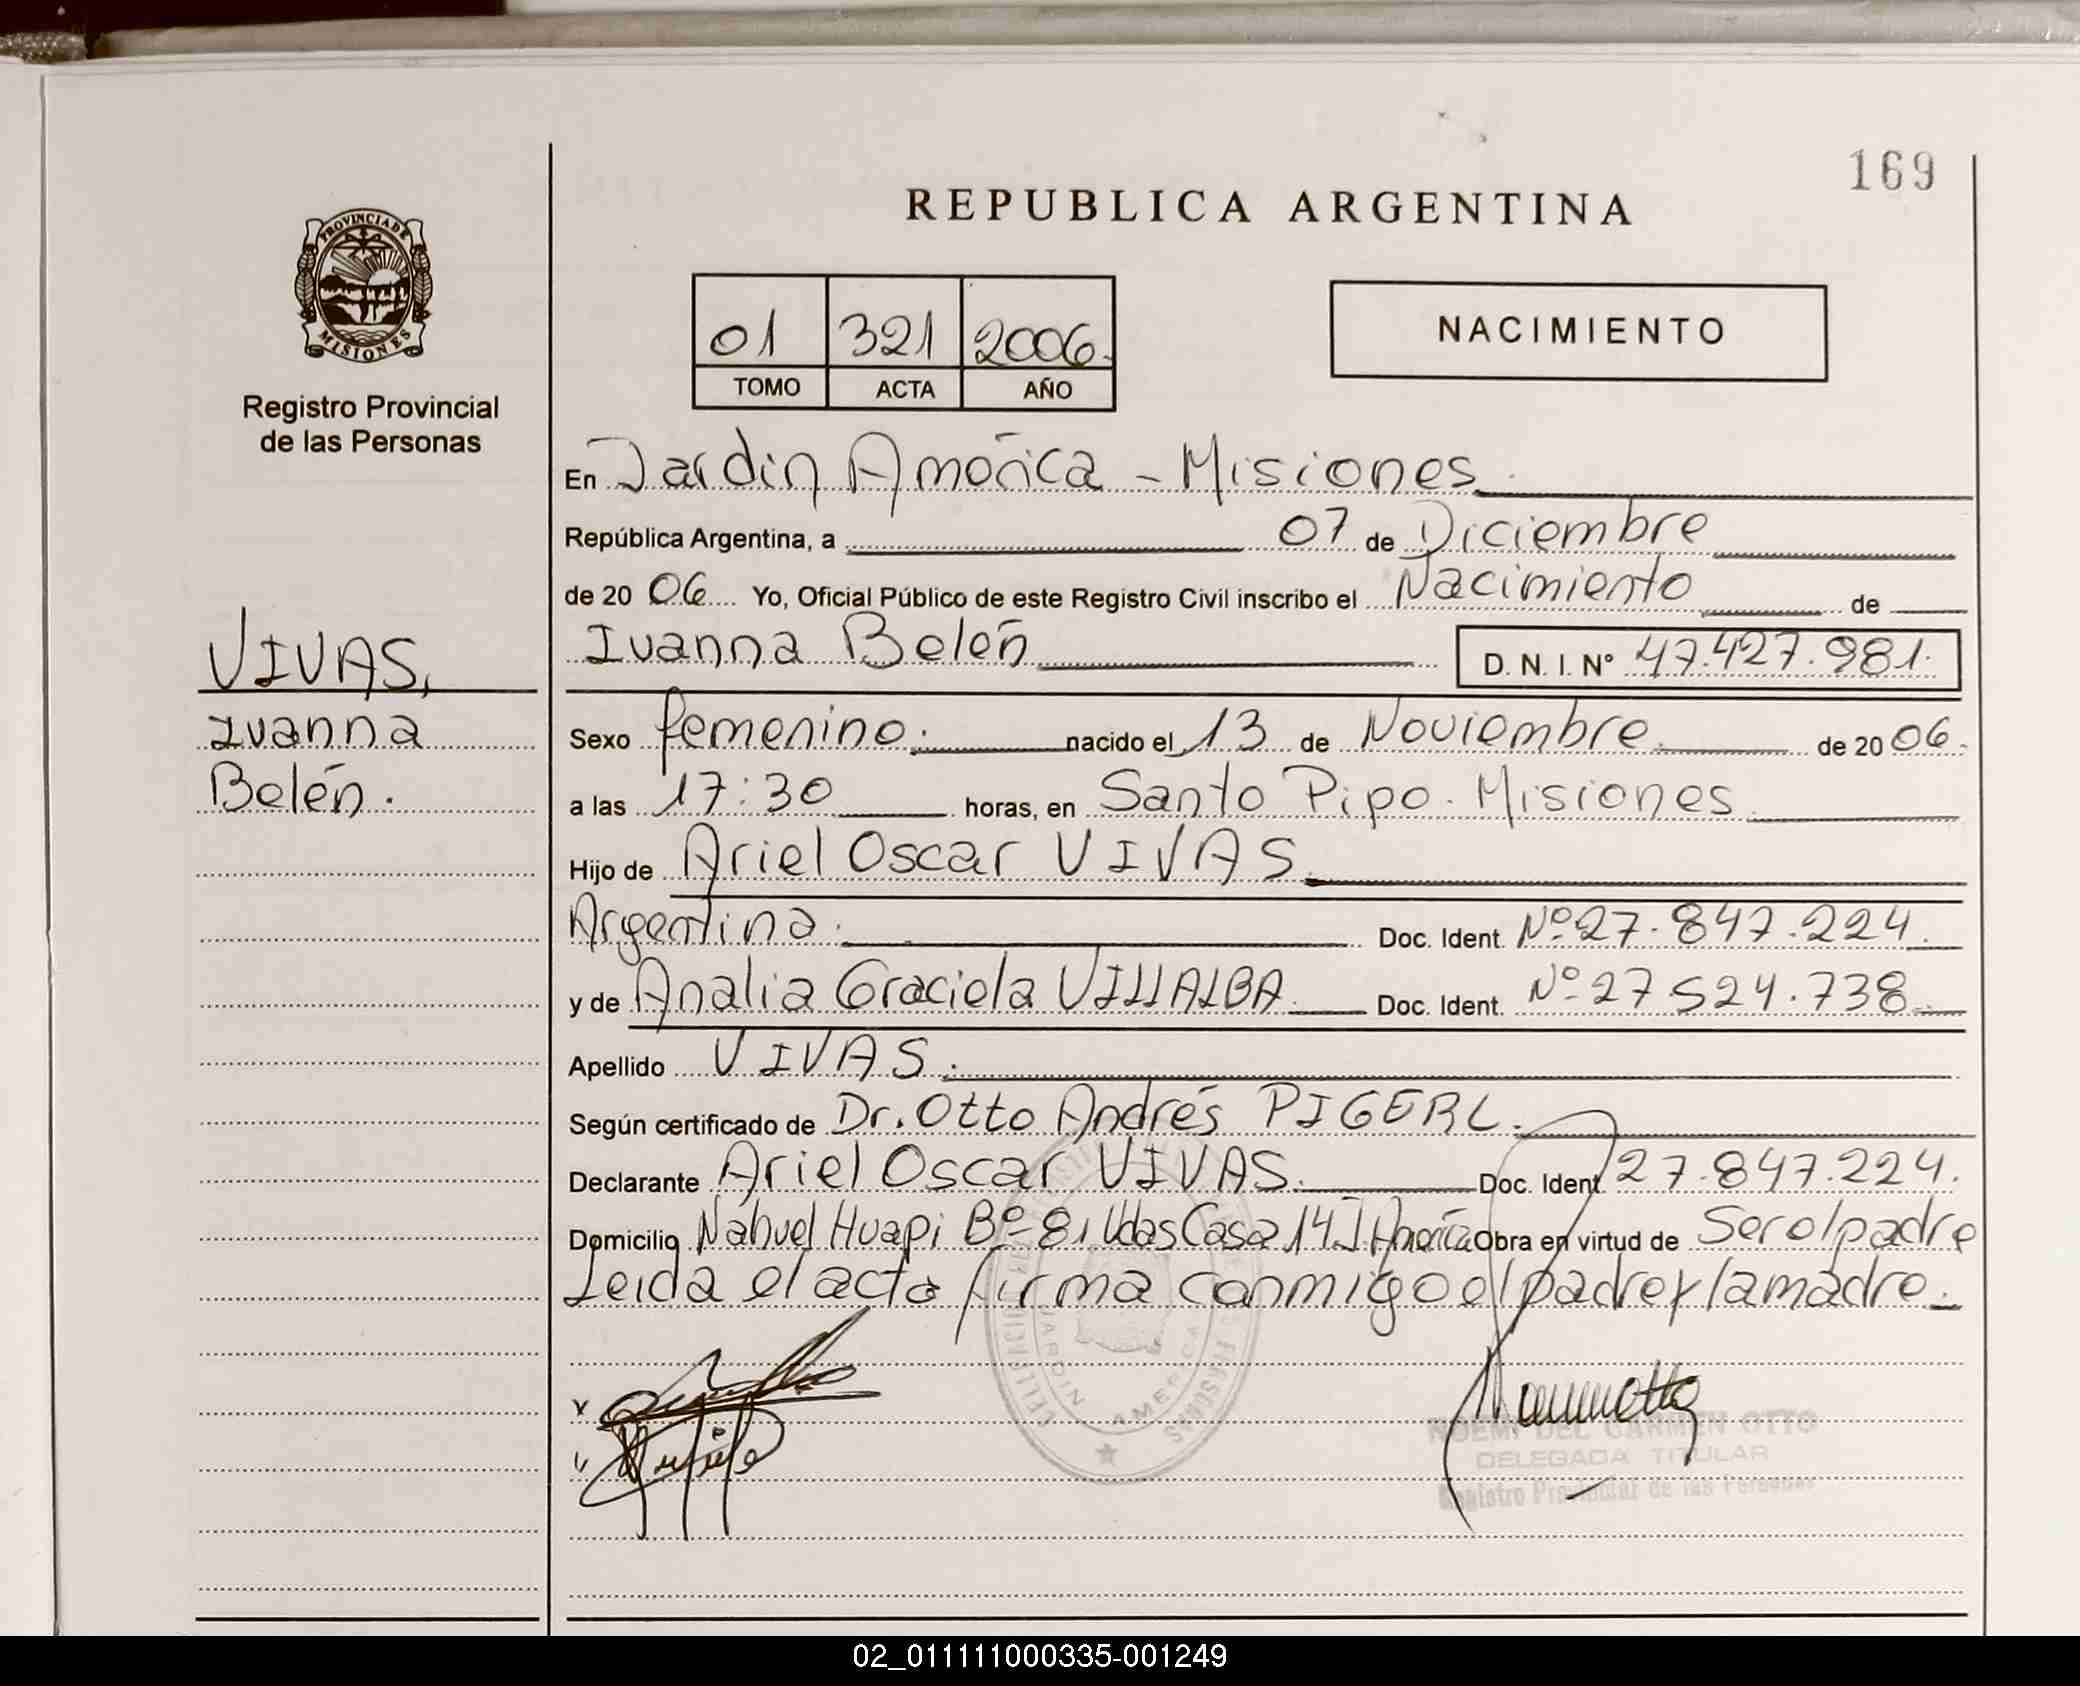 169
REPUBLICA ARGENTINA
PROVINCIA DE
MISIONES
Registro Provincial
de las Personas
01 321 2006.
TOMO ACTA AÑO
NACIMIENTO
En Jardín América - Misiones.
República Argentina, a 07 de Diciembre
de 20 06 Yo, Oficial Público de este Registro Civil inscribo el Nacimiento de
Ivanna Belén D. N. I. Nº 47.427.981.
VIVAS,
Ivanna
Belén.
Sexo femenino. nacido el 13 de Noviembre de 20 06.
a las 17:30 horas, en Santo Pipo. Misiones
Hijo de Ariel Oscar VIVAS.
Argentina. Doc. Ident. Nº 27.847.224.
y de Analia Graciela VILLALBA. Doc. Ident. Nº 27 524.738.
Apellido VIVAS.
Según certificado de Dr. Otto Andrés PIGERL.
Declarante Ariel Oscar VIVAS. Doc. Ident. 27.847.224.
Domicilio Nahuel Huapi Bº 81 Vdas Casa 14 J. América Obra en virtud de Ser el padre
Leida el acta firma conmigo el padre y la madre.
JARDIN AMERICA
NOEMI DEL CARMEN OTTO
DELEGADA TITULAR
Registro Provincial de las Personas
02_011111000335-001249